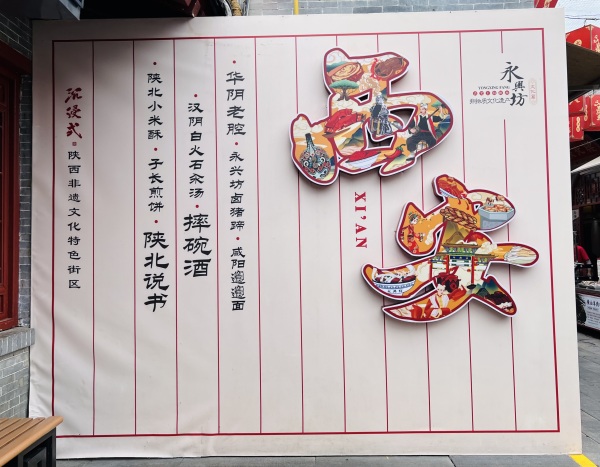 永興坊
西安
XI'AN
华阴老腔·永兴坊卤猪蹄·咸阳𰻝𰻝面
汉阴白火石汆汤·摔碗酒
陕北小米酥·子长煎饼·陕北说书
沉浸式陕西非遗文化特色街区